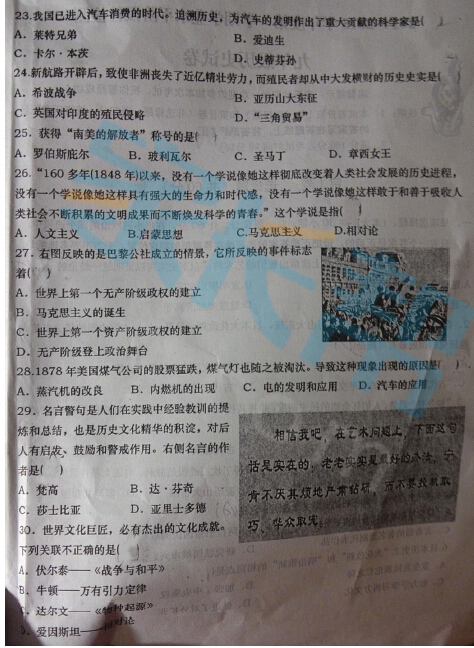 23.我国已进入汽车消费的时代，追溯历史，为汽车的发明作出了重大贡献的科学家是( )
A．莱特兄弟 B．爱迪生
C．卡尔·本茨 D．史蒂芬孙
24.新航路开辟后，致使非洲丧失了近亿精壮劳力，而殖民者却从中大发横财的历史史实是( )
A．希波战争 B．亚历山大东征
C．英国对印度的殖民侵略 D．"三角贸易"
25．获得"南美的解放者"称号的是( )
A．罗伯斯庇尔 B．玻利瓦尔 C．圣马丁 D．章西女王
26．"160 多年(1848 年)以来，没有一个学说像她这样彻底改变着人类社会发展的历史进程，
没有一个学说像她这样具有强大的生命力和时代感，没有一个学说像她这样敢于和善于吸收人
类社会不断积累的文明成果而不断焕发科学的青春。"这个学说是指( )
A．人文主义 B.启蒙思想 C.马克思主义 D.相对论
27．右图反映的是巴黎公社成立的情景，它所反映的事件标志
着( )
A．世界上第一个无产阶级政权的建立
B．马克思主义的诞生
C．世界上第一个资产阶级政权的建立
D．无产阶级登上政治舞台
28.1878 年美国煤气公司的股票猛跌，煤气灯也随之被淘汰。导致这种现象出现的原因是( )
A．蒸汽机的改良 B．内燃机的出现 C．电的发明和应用 D．汽车的应用
29．名言警句是人们在实践中经验教训的提
炼和总结，也是历史文化精华的积淀，对后
人有启发、鼓励和警戒作用。右侧名言的作
者是( )
A．梵高 B．达·芬奇
C．莎士比亚 D．亚里士多德
相信我吧，在艺术问题上，下面这句
话是实在的，老老实实是最好的办法，宁
肯不厌其烦地严肃钻研，而不要投机取
巧、华众取宠。
30．世界文化巨匠，必有杰出的文化成就。
下列关联不正确的是( )
A．伏尔泰——《战争与和平》
B．牛顿——万有引力定律
C．达尔文——《物种起源》
D．爱因斯坦——相对论